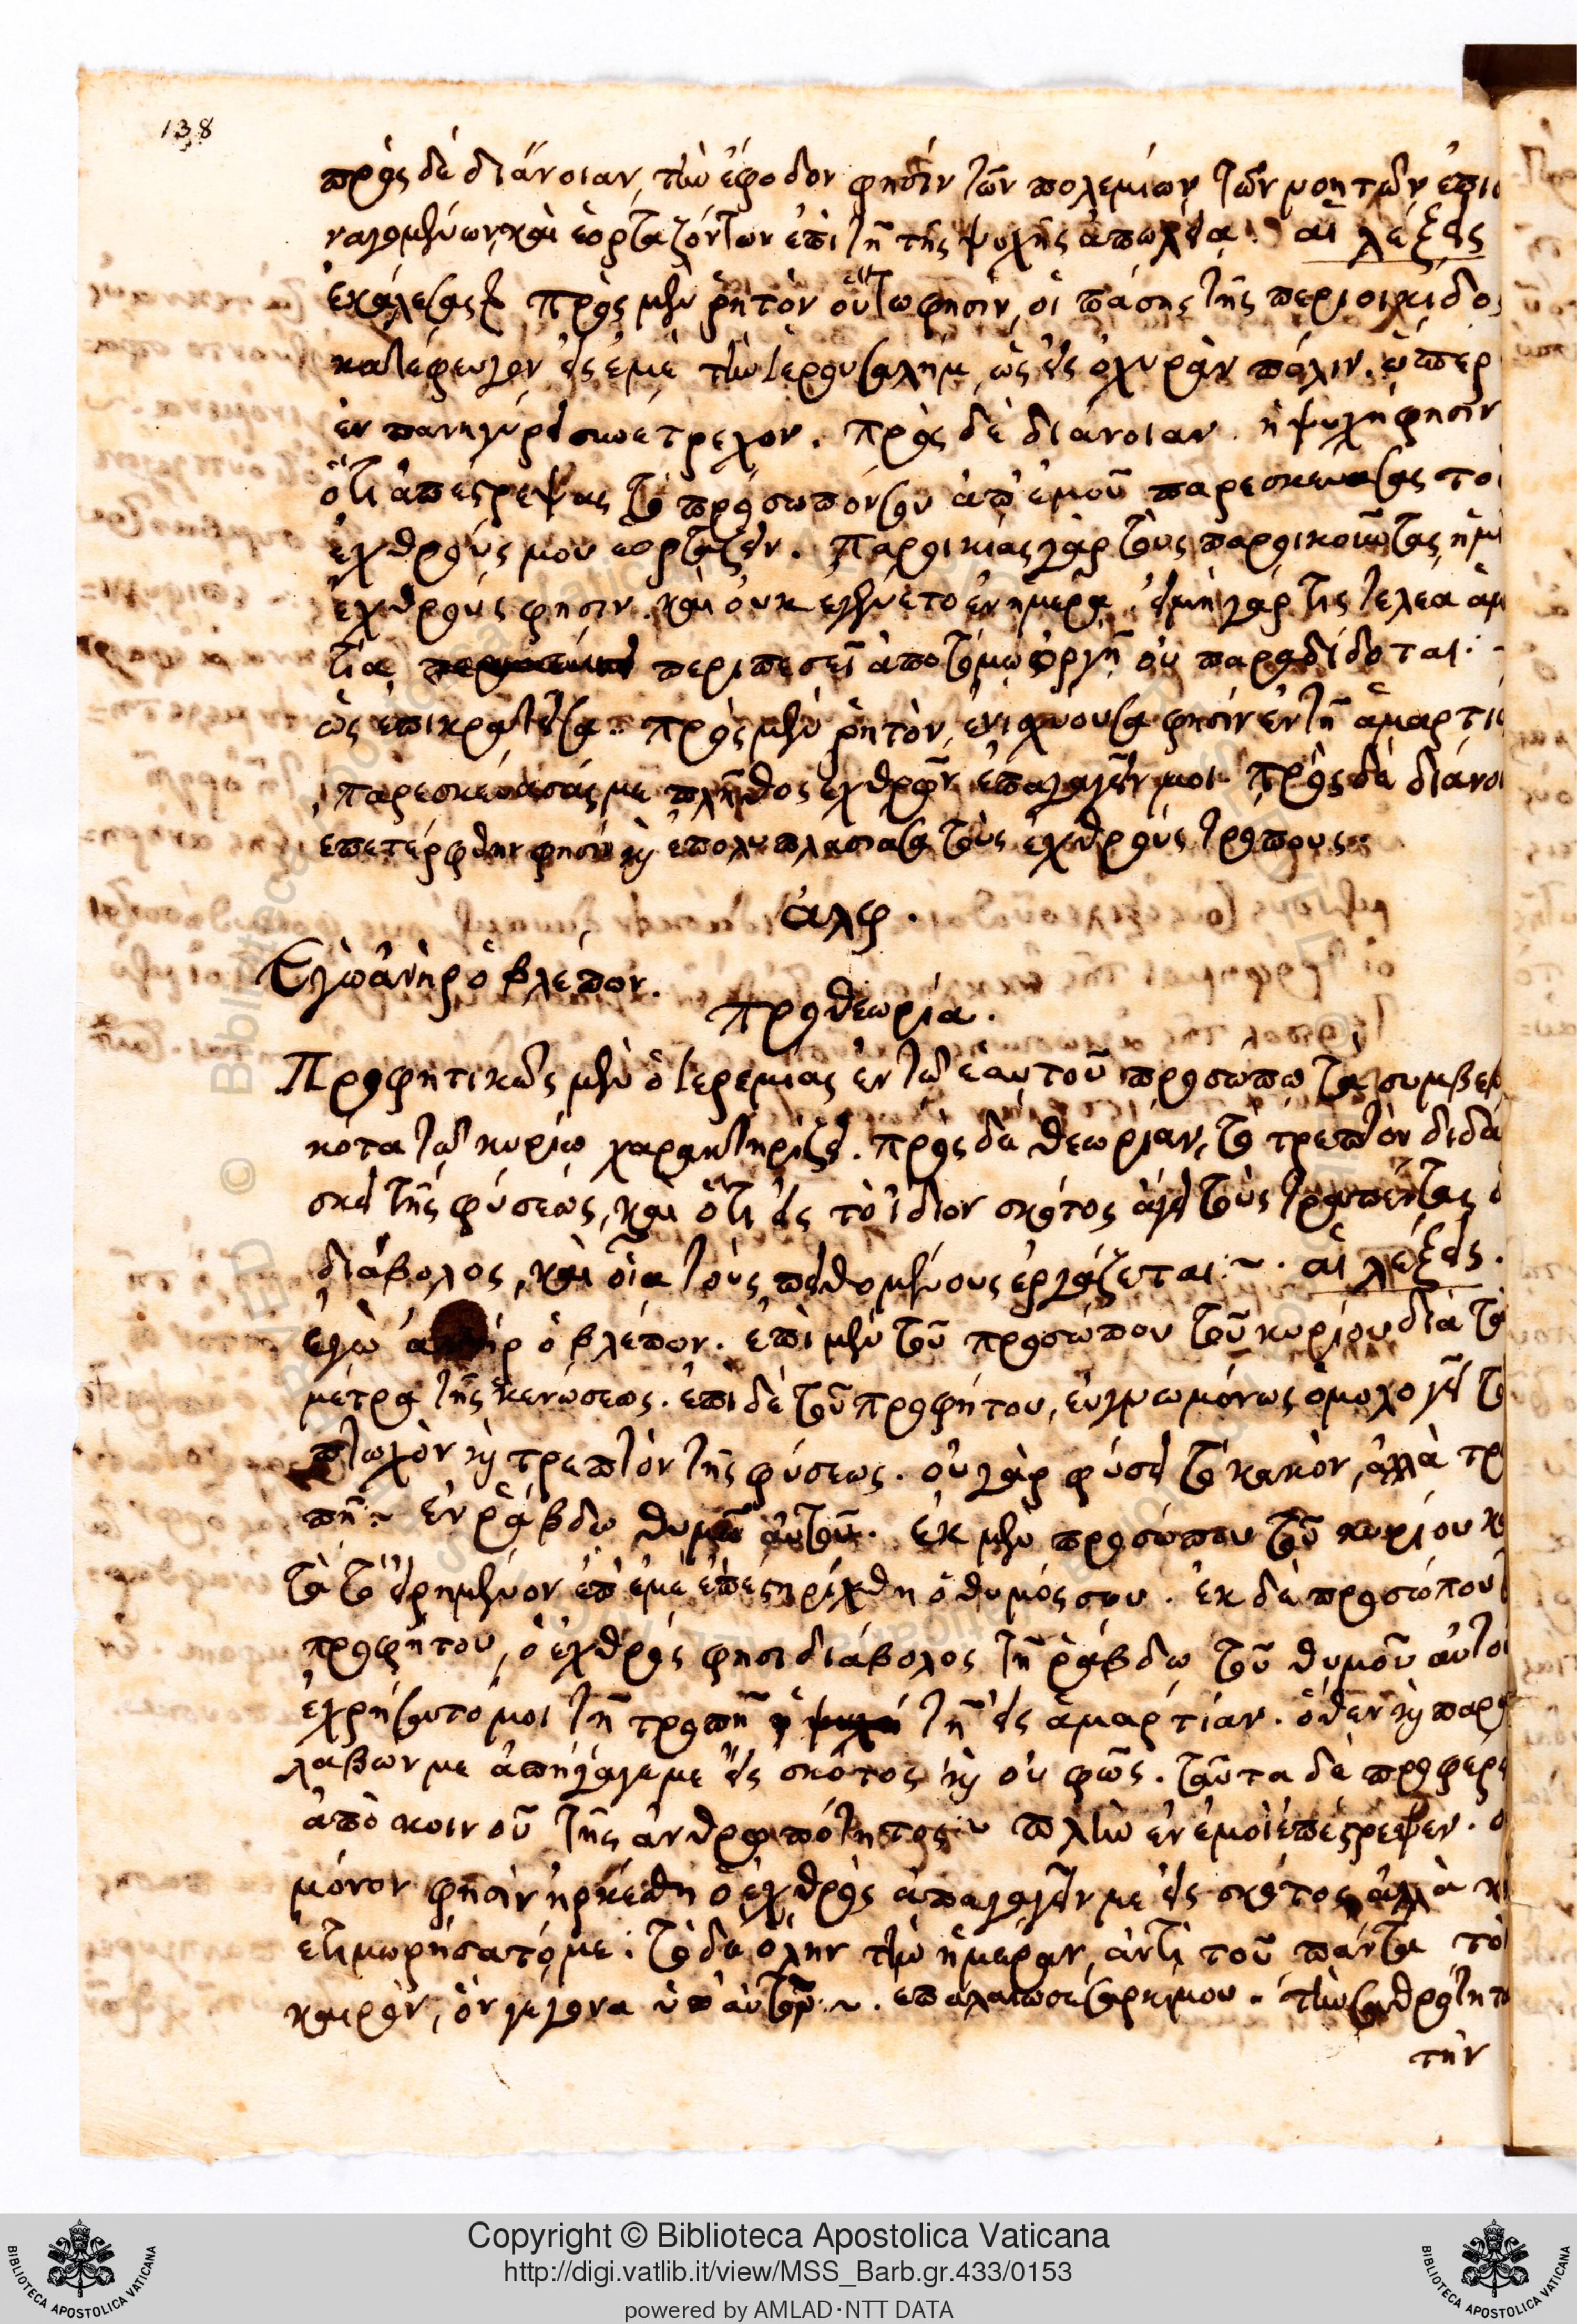 138
πρὸς δὲ διάνοιαν, τὴν ἔφοδον φησὶν τῶν πολεμίων τῶν νοητῶν ἐπι
ναγομένων, καὶ ἑορταζόντων ἐπὶ τῇ τῆς ψυχῆς ἀπωλεία. αἱ λέξεις
ἐκάλεσας πρὸς μὲν ῥητὸν οὕτω φησὶν, οἱ πάσης τῆς περιοικίδος
κατέφευγον εἰς ἐμὲ τὴν ἱερουσαλὴμ, ὡς εἰς ὀχυρὰν πόλιν. ὥσπερ
ἐν πανηγύρει συνέτρεχον. πρὸς δὲ διάνοιαν. ἡ ψυχή φησιν
ὅτι ἀπέστρεψας τὸ πρόσωπόν σου ἀπ' ἐμοῦ παρεσκεύασας το
ἐχθρούς μου ἑορτάζειν. παροικίας γὰρ τοὺς παροικοῦντας ἡμῖ
ἐχθρούς φησιν. καὶ οὐκ ἐγένετο ἐν ἡμέρα. εἰ μὴ γάρ τις τελεία ἁμ
τία περιπεσεῖ ἀποτόμω ὀργῇ οὐ παραδίδοται:
ὡς ἐπικρατεῖσα. πρὸς μὲν ῥητὸν, ἐνισχύουσα φησὶν ἐν τῇ ἁμαρτί
παρεσκεύασάς με πλῆθος ἐχθρῶν ἐπαγαγεῖν μοι. πρὸς δὲ διάνοι
ἐπετέρφθην φησὶ καὶ ἐπολυπλασίασα τοὺς ἐχθροὺς τρόπους:
ἄλεφ.
Ἐγὼ ἀνὴρ ὁ βλέπων.
προθεωρία.
Προφητικῶς μὲν ὁ ἱερεμίας ἐν τῷ ἑαυτοῦ προσώπω τὰ συμβεβ
κότα τῷ κυρίω χαρακτηρίζει. πρὸς δὲ θεωρίαν, τὸ τρεπτὸν διδά
σκει τῆς φύσεως, καὶ ὅτι εἰς τὸ ἴδιον σκότος ἄγει τοὺς τραπέντας ὁ
διάβολος, καὶ οἷα τοὺς πειθομένους ἐργάζεται: αἱ λέξεις.
ἐγὼ ἀνὴρ ὁ βλέπων. ἐπὶ μὲν τοῦ προσώπου τοῦ κυρίου διὰ τὰ
μέτρα τῆς κενώσεως. ἐπὶ δὲ τοῦ προφήτου, εὐγνωμόνως ὁμολογεῖ τὸ
πτωχὸν καὶ τρεπτὸν τῆς φύσεως. οὐ γὰρ φύσει τὸ κακὸν, ἀλλὰ τρο
πῇ: ἐν ῥάβδω θυμοῦ αὐτοῦ. ἐκ μὲν προσώπου τοῦ κυρίου κα
τὰ τὸ εἰρημένον ἐπ' ἐμὲ ἐπεστηρίχθη ὁ θυμός σου. ἐκ δὲ προσώπου
προφήτου, ὁ ἐχθρός φησι διάβολος τῇ ῥάβδω τοῦ θυμοῦ αὐτοῦ
ἐχρήσατό μοι τῇ τροπῇ τῇ εἰς ἁμαρτίαν. ὅθεν καὶ παρα
λαβών με ἀπήγαγέ με εἰς σκότος καὶ οὐ φῶς. ταῦτα δὲ προφέρει
ἀπὸ κοινοῦ τῆς ἀνθρωπότητος: πλὴν ἐν ἐμοὶ ἐπέστρεψεν. οὐ
μόνον φησὶν ἠρκέσθη ὁ ἐχθρὸς ἀπαγαγεῖν με εἰς σκότος, ἀλλὰ καὶ
ἐτιμωρήσατό με: τὸ δὲ ὅλην τὴν ἡμέραν, ἀντὶ τοῦ πάντα τὸ
καιρὸν, ὃν γέγονα ὑπ' αὐτῷ: ἐπαλαίωσε σάρκα μου. τὴν σαθρότητα
τὴν
Copyright © Biblioteca Apostolica Vaticana
http://digi.vatlib.it/view/MSS_Barb.gr.433/0153
powered by AMLAD·NTT DATA
BIBLIOTECA APOSTOLICA VATICANA
BIBLIOTECA APOSTOLICA VATICANA